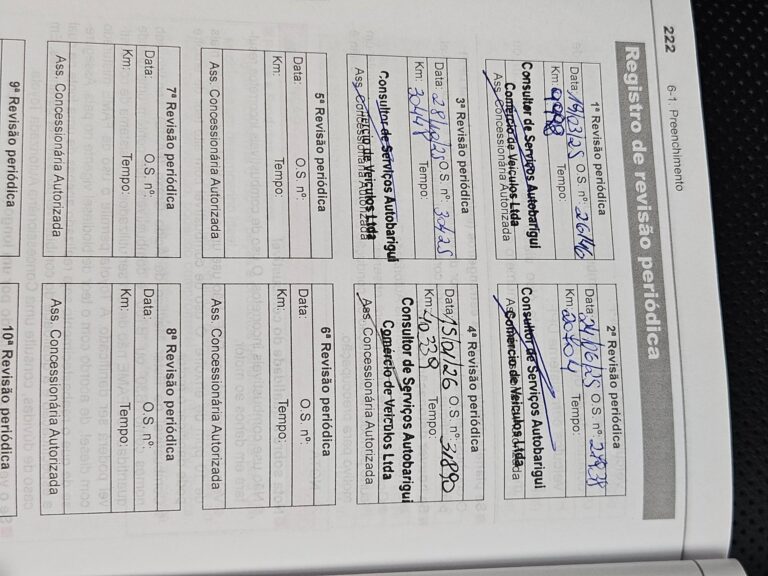 222
6-1. Preenchimento
Registro de revisão periódica
1ª Revisão periódica
Data: 19/03/25 O.S. nº: 26146
Km: Tempo:
Consultor de Serviços Autobarigui
Comércio de Veiculos Ltda
Ass. Concessionária Autorizada
2ª Revisão periódica
Data: O.S. nº:
Km: 20704 Tempo:
Consultor de Serviços Autobarigui
Comércio de Veiculos Ltda
3ª Revisão periódica
Data: O.S. nº: 30425
Km: 30148 Tempo:
Consultor de Serviços Autobarigui
Comércio de Veiculos Ltda
Ass. Concessionária Autorizada
4ª Revisão periódica
Data: 15/01/26 O.S. nº: 31890
Km: 40339 Tempo:
Consultor de Serviços Autobarigui
Comércio de Veiculos Ltda
Ass. Concessionária Autorizada
5ª Revisão periódica
Data: O.S. nº:
Km: Tempo:
Ass. Concessionária Autorizada
6ª Revisão periódica
Data: O.S. nº:
Km: Tempo:
Ass. Concessionária Autorizada
7ª Revisão periódica
Data: O.S. nº:
Km: Tempo:
Ass. Concessionária Autorizada
8ª Revisão periódica
Data: O.S. nº:
Km: Tempo:
Ass. Concessionária Autorizada
9ª Revisão periódica
10ª Revisão periódica